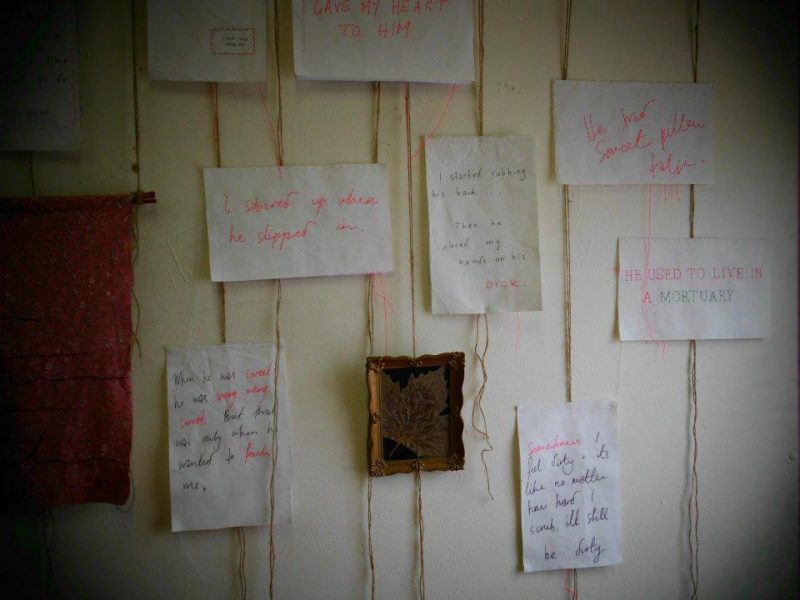 good
I GAVE MY HEART
TO HIM
He had
Sweet pillow
talk.
I started rubbing
his back....
Then he
placed my
hands on his
DICK.
I soared up when
he slipped in.
HE USED TO LIVE IN
A MORTUARY
When he was sweet
he was very very
sweet But that
was only when he
wanted to
me.
Sometimes I
feel dirty. its
like no matter
how hard I
scrub, ill still
be dirty